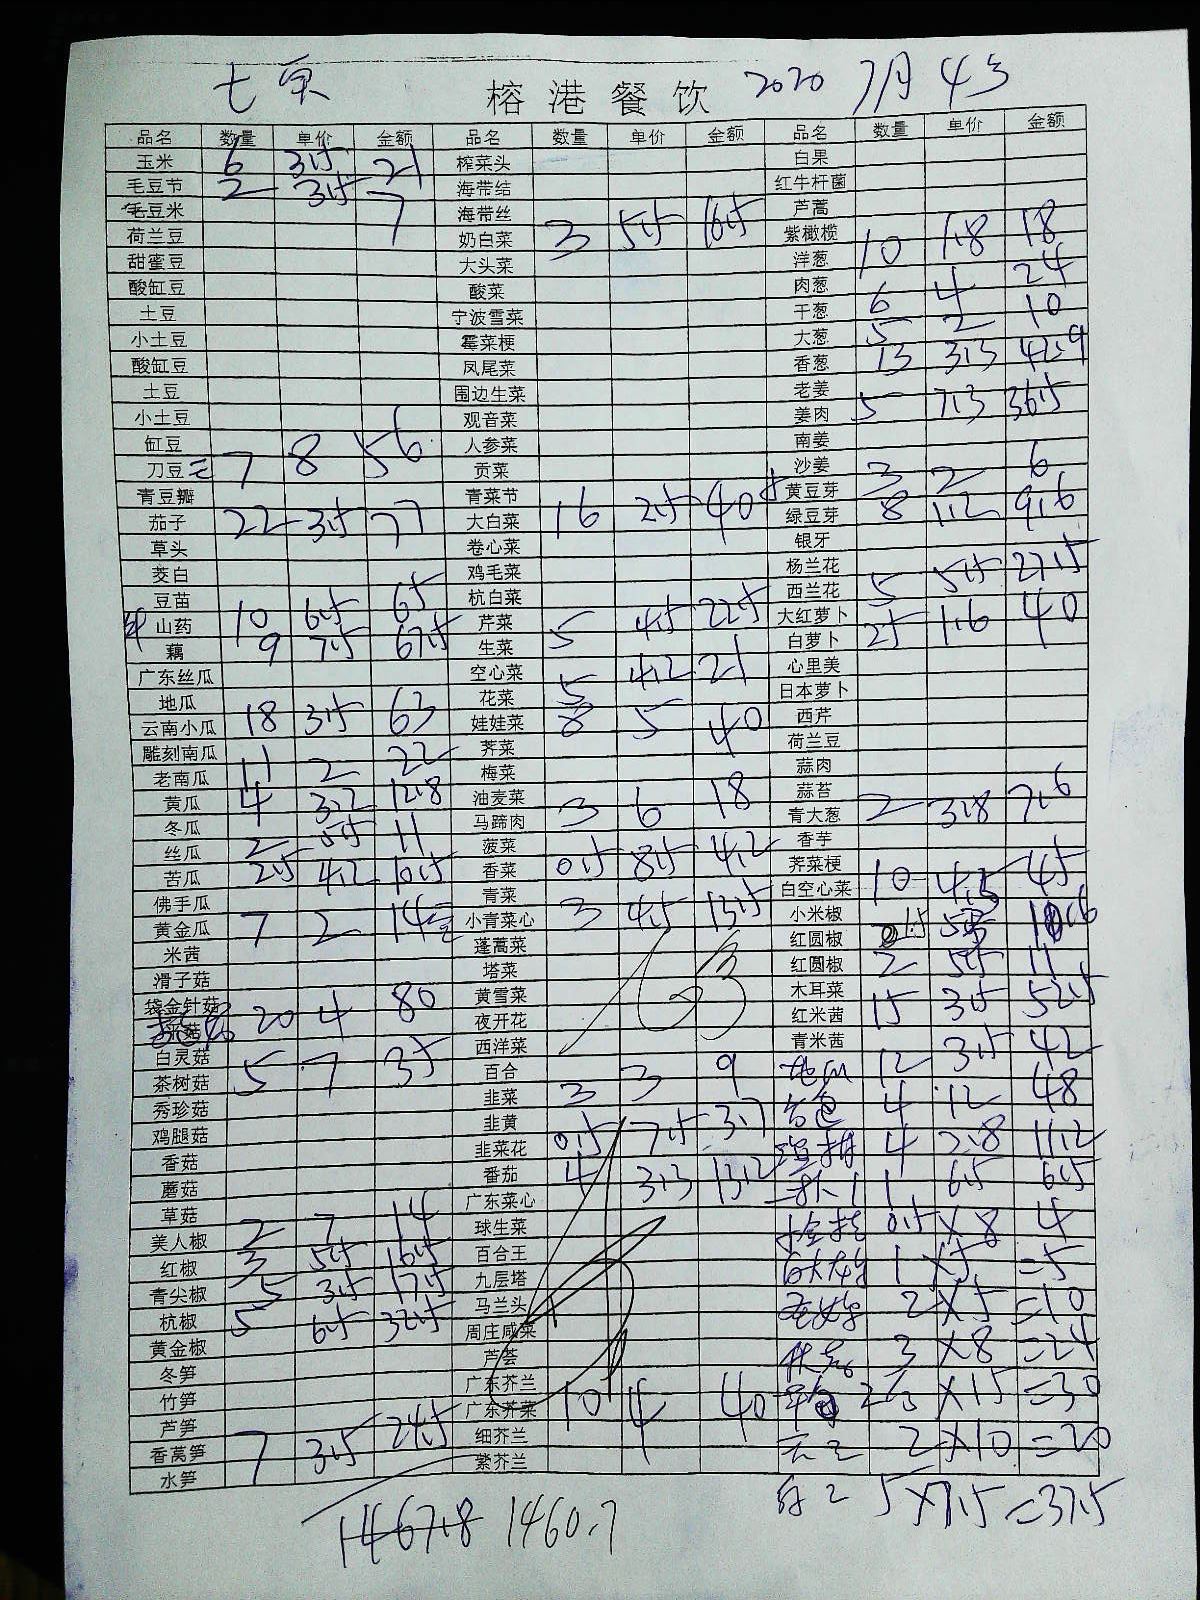 七泉 榕港餐饮 2020 7月4号
品名 数量 单价 金额 品名 数量 单价 金额 品名 数量 单价 金额
玉米 6 3.5 21 榨菜头 白果
毛豆节 2 3.5 7 海带结 红牛杆菌
毛豆米 海带丝 芦蒿
荷兰豆 奶白菜 3 5.5 16.5 紫橄榄 10 1.8 18
甜蜜豆 大头菜 洋葱
酸缸豆 酸菜 肉葱 6 4 24
土豆 宁波雪菜 干葱 5 2 10
小土豆 霉菜梗 大葱 13 3.3 42.9
酸缸豆 凤尾菜 香葱
土豆 围边生菜 老姜 5 7.3 36.5
小土豆 观音菜 姜肉
缸豆 人参菜 南姜
刀豆 7 8 56 贡菜 沙姜 3 2 6
青豆瓣 青菜节 黄豆芽 8 1.2 9.6
茄子 22 3.5 77 大白菜 16 2.5 40 绿豆芽
草头 卷心菜 银牙
茭白 鸡毛菜 杨兰花
豆苗 杭白菜 西兰花 5 5.5 27.5
山药 10 6.5 65 芹菜 5 4.5 22.5 大红萝卜 25 1.6 40
藕 9 7.5 67.5 生菜 白萝卜
广东丝瓜 空心菜 5 4.2 21 心里美
地瓜 花菜 8 5 40 日本萝卜
云南小瓜 18 3.5 63 娃娃菜 西芹
雕刻南瓜 荠菜 荷兰豆
老南瓜 11 2 22 梅菜 蒜肉
黄瓜 4 3.2 12.8 油麦菜 3 6 18 蒜苔
冬瓜 马蹄肉 青大葱 2 3.8 7.6
丝瓜 2 5.5 11 菠菜 香芋
苦瓜 2.5 4.2 10.5 香菜 0.5 8.5 4.2 荠菜梗
佛手瓜 青菜 白空心菜 10 4.5 45
黄金瓜 7 2 14 小青菜心 3 4.5 13.5 小米椒
米茜 蓬蒿菜 红圆椒 1.5
滑子菇 塔菜 红圆椒 2 5.5 11
袋金针菇 黄雪菜 木耳菜
20 4 80 夜开花 红米茜 15 3.5 52.5
白灵菇 西洋菜 青米茜
茶树菇 5 7 35 百合 12 3.5 42
秀珍菇 韭菜 3 3 9 4 12 48
鸡腿菇 韭黄 4 2.8 11.2
香菇 韭菜花 0.5 7.5 3.7 1 6.5 6.5
蘑菇 番茄 4 3.3 13.2
草菇 广东菜心 0.5 × 8 4
美人椒 2 7 14 球生菜 1 × 5 = 5
红椒 3 5.5 16.5 百合王 2 × 5 = 10
青尖椒 5 3.5 17.5 九层塔 3 × 8 = 24
杭椒 5 6.5 32.5 马兰头 × 15 = 30
黄金椒 周庄咸菜 2 × 10 = 20
冬笋 芦荟
竹笋 广东芥兰
芦笋 广东芥菜 10 4 40
香莴笋 7 3.5 24.5 细芥兰
水笋 紫芥兰
5 × 7.5 = 37.5
1467.8 1460.7